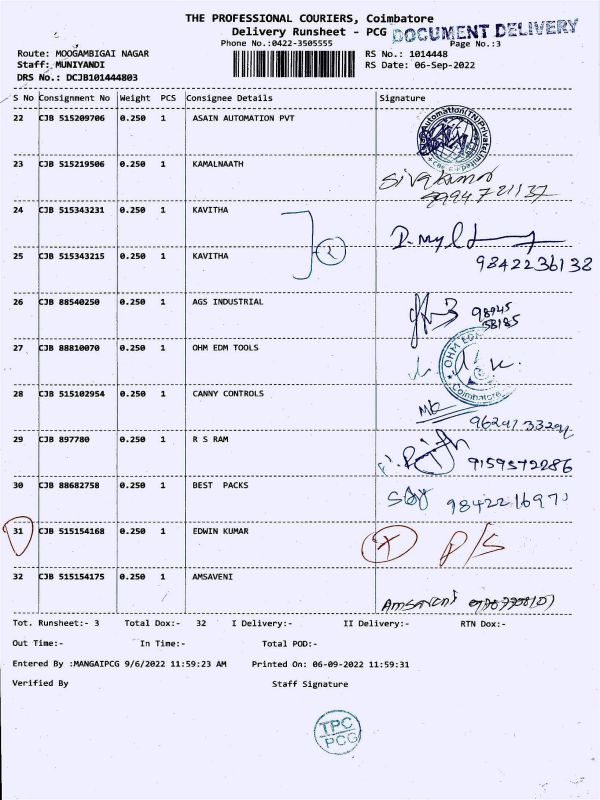 THE PROFESSIONAL COURIERS, Coimbatore
Delivery Runsheet - PCG
DOCUMENT DELIVERY
Phone No.:0422-3505555
Page No.:3
Route: MOOGAMBIGAI NAGAR
RS No.: 1014448
Staff: MUNIYANDI
RS Date: 06-Sep-2022
DRS No.: DCJB101444803
S No Consignment No Weight PCS Consignee Details Signature
22 CJB 515209706 0.250 1 ASAIN AUTOMATION PVT
23 CJB 515219506 0.250 1 KAMALNAATH
Sivakumar
9994721137
24 CJB 515343231 0.250 1 KAVITHA
2
25 CJB 515343215 0.250 1 KAVITHA
9842236138
26 CJB 88540250 0.250 1 AGS INDUSTRIAL
98945
58185
27 CJB 88810070 0.250 1 OHM EDM TOOLS
OHM EDM
Coimbatore
28 CJB 515102954 0.250 1 CANNY CONTROLS
29 CJB 897780 0.250 1 R S RAM
9159572286
30 CJB 88682758 0.250 1 BEST PACKS
31 CJB 515154168 0.250 1 EDWIN KUMAR
X P/S
32 CJB 515154175 0.250 1 AMSAVENI
AMSAVENI
Tot. Runsheet:- 3 Total Dox:- 32 I Delivery:- II Delivery:- RTN Dox:-
Out Time:- In Time:- Total POD:-
Entered By :MANGAIPCG 9/6/2022 11:59:23 AM Printed On: 06-09-2022 11:59:31
Verified By Staff Signature
TPC
PCG